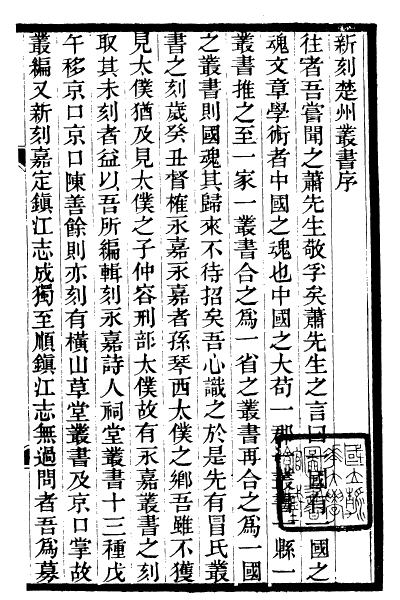 新刻楚州叢書序
往者吾嘗聞之蕭先生敬孚矣蕭先生之言曰國有一國之
魂文章學術者中國之魂也中國之大苟一郡叢書一縣一
叢書推之至一家一叢書合之爲一省之叢書再合之爲一國
之叢書則國魂其歸來不待招矣吾心識之於是先有冒氏叢
書之刻歲癸丑督榷永嘉永嘉者孫琴西太僕之鄉吾雖不獲
見太僕猶及見太僕之子仲容刑部太僕故有永嘉叢書之刻
取其未刻者益以吾所編輯刻永嘉詩人祠堂叢書十三種戊
午移京口京口陳善餘則亦刻有橫山草堂叢書及京口掌故
叢編又新刻嘉定鎮江志成獨至順鎮江志無過問者吾爲募